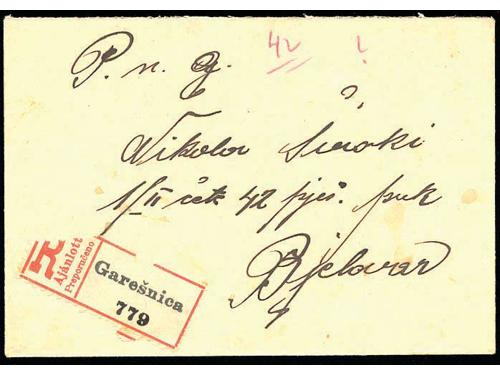 42 !
P. n. g.
Nikolov Široki
1/II čet 42 pješ. puk
Bjelovar
R
Ajánlott
Preporučeno
Garešnica
779